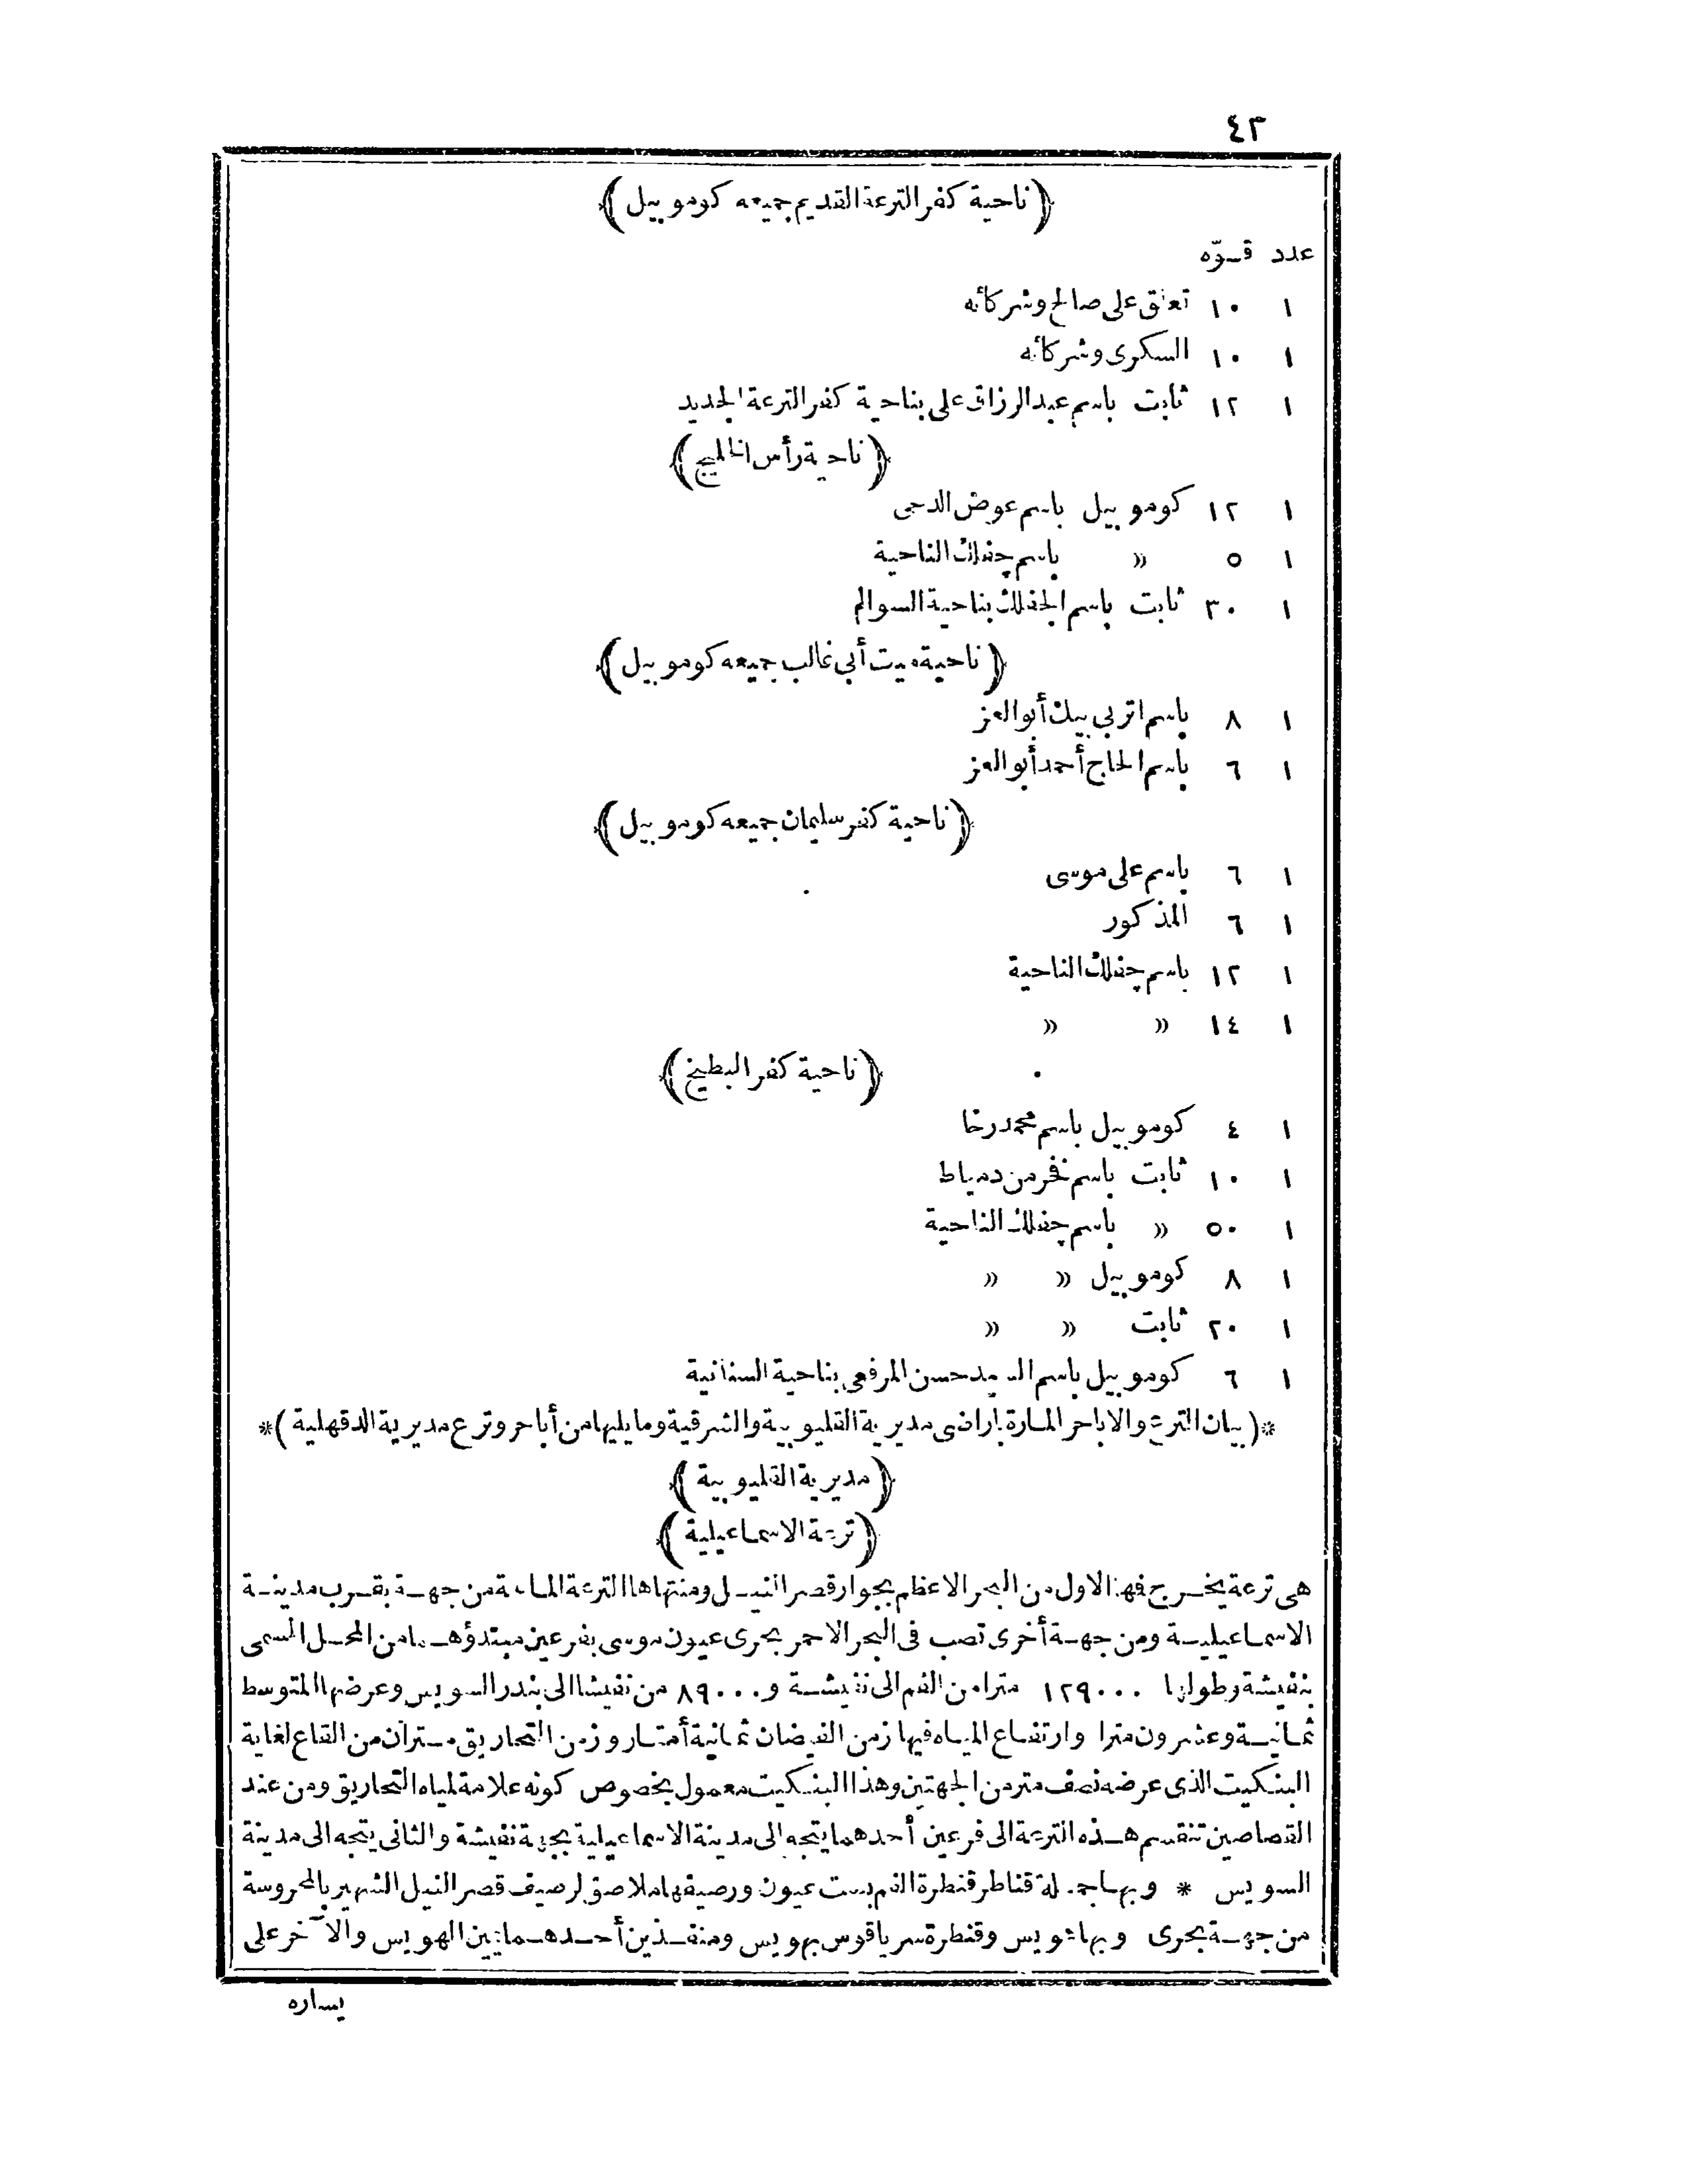 ٤٢
﴿ناحية كفر الترعة القديم جميعه كوموبيل﴾
عدد قــوّه
١ ١٠ تعلق على صالح وشركائه
١ ١٠ السكرى وشركائه
١ ١٢ ثابت باسم عبد الرزاق على بناحية كفر الترعة الجديد
﴿ناحية رأس الخليج﴾
١ ١٢ كوموبيل باسم عوض الدحى
١ ٥ » باسم چفلك الناحية
١ ٣٠ ثابت باسم الجفلك بناحية السوالم
﴿ناحية ميت أبى غالب جميعه كوموبيل﴾
١ ٨ باسم اتربى بيك أبو العز
١ ٦ باسم الحاج أحمد أبو العز
﴿ناحية كفر سليمان جميعه كوموبيل﴾
١ ٦ باسم على موسى
١ ٦ المذكور
١ ١٢ باسم چفلك الناحية
١ ١٤ » »
﴿ناحية كفر البطيخ﴾
١ ٤ كوموبيل باسم محمد رخا
١ ١٠ ثابت باسم فخر من دمياط
١ ٥٠ » باسم چفلك الناحية
١ ٨ كوموبيل » »
١ ٢٠ ثابت » »
١ ٦ كوموبيل باسم السيد حسن المرفعى بناحية السنانية
*(بيان الترع والاباحر المارة باراضى مديرية القليوبية والشرقية وما يليها من أباحر وترع مديرية الدقهلية)*
﴿مديرية القليوبية﴾
﴿ترعة الاسماعيلية﴾
هى ترعة يخرج فها الاول من البحر الاعظم بجوار قصر النيل ومنتهاها الترعة المالحة من جهة بقرب مدينة
الاسماعيلية ومن جهة أخرى تصب فى البحر الاحمر بحرى عيون موسى بفرعين مبتدؤهما من المحل المسمى
بنفيشة وطولها ١٢٩٠٠٠ مترا من الفم الى نفيشة و ٨٩٠٠٠ من نفيشا الى بندر السويس وعرضها المتوسط
ثمانية وعشرون مترا وارتفاع المياه فيها زمن الفيضان ثمانية أمتار وزمن التحاريق متران من القاع لغاية
البنكيت الذى عرضه نصف متر من الجهتين وهذا البنكيت معمول بخصوص كونه علامة لمياه التحاريق ومن عند
القصاصين تنقسم هذه الترعة الى فرعين أحدهما يتجه الى مدينة الاسماعيلية بجهة نفيشة والثانى يتجه الى مدينة
السويس * وبها جملة قناطر قنطرة الفم بست عيون ورصيفها ملاصق لرصيف قصر النيل الشهير بالمحروسة
من جهة بحرى وبها هويس وقنطرة سرياقوس بهويس ومنفذين أحدهما يبين الهويس والآخر على
يساره